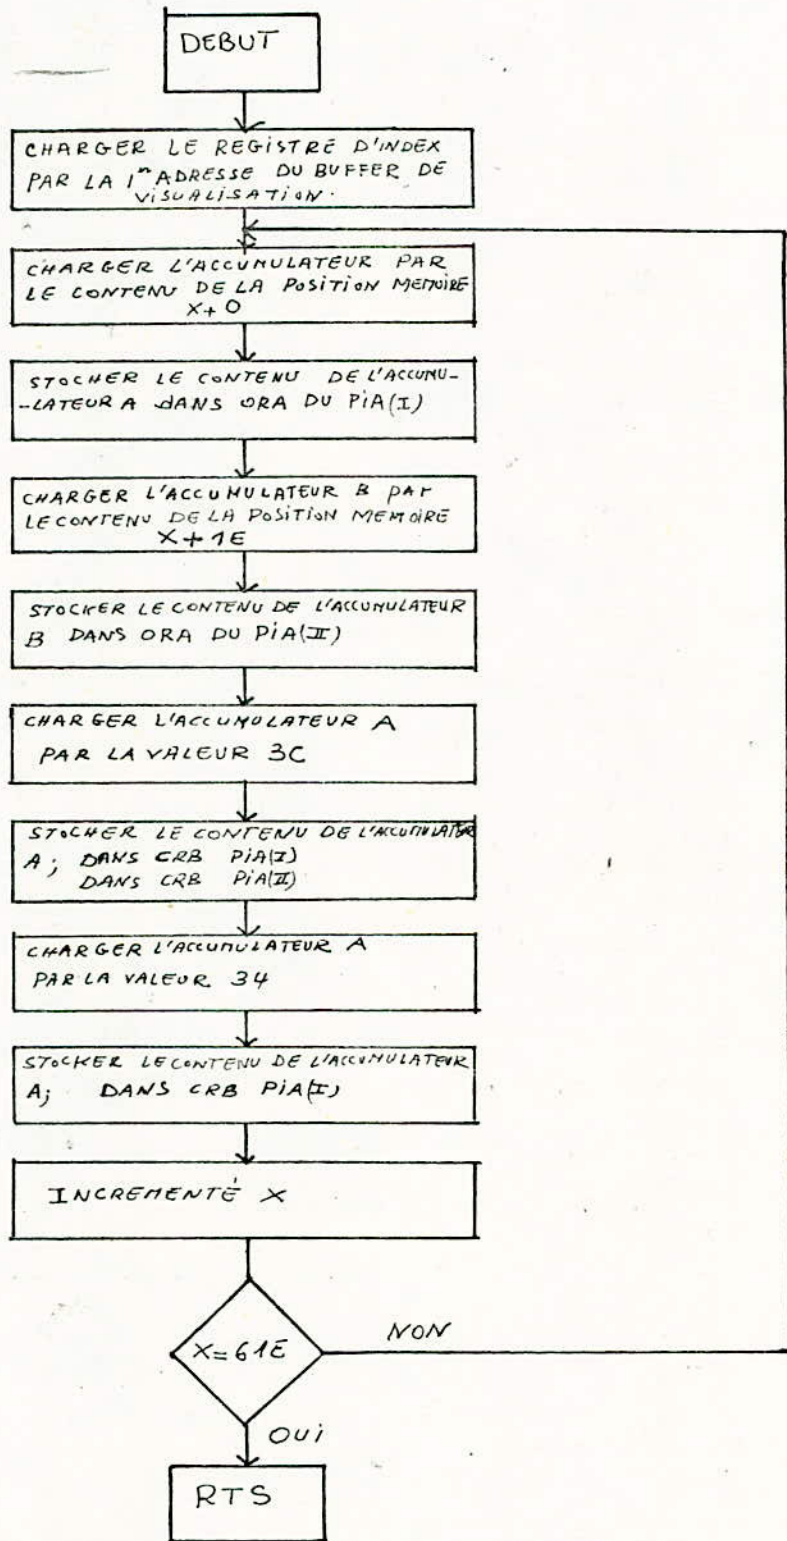 DEBUT
CHARGER LE REGISTRE D'INDEX
PAR LA 1re ADRESSE DU BUFFER DE
VISUALISATION.
CHARGER L'ACCUMULATEUR PAR
LE CONTENU DE LA POSITION MEMOIRE
X+0
STOCHER LE CONTENU DE L'ACCUMU-
-LATEUR A DANS ORA DU PIA(I)
CHARGER L'ACCUMULATEUR B PAR
LE CONTENU DE LA POSITION MEMOIRE
X+1E
STOCKER LE CONTENU DE L'ACCUMULATEUR
B DANS ORA DU PIA(II)
CHARGER L'ACCUMULATEUR A
PAR LA VALEUR 3C
STOCHER LE CONTENU DE L'ACCUMULATEUR
A; DANS CRB PIA(I)
DANS CRB PIA(II)
CHARGER L'ACCUMULATEUR A
PAR LA VALEUR 34
STOCKER LE CONTENU DE L'ACCUMULATEUR
A; DANS CRB PIA(I)
INCREMENTÉ X
X=61E
NON
OUI
RTS